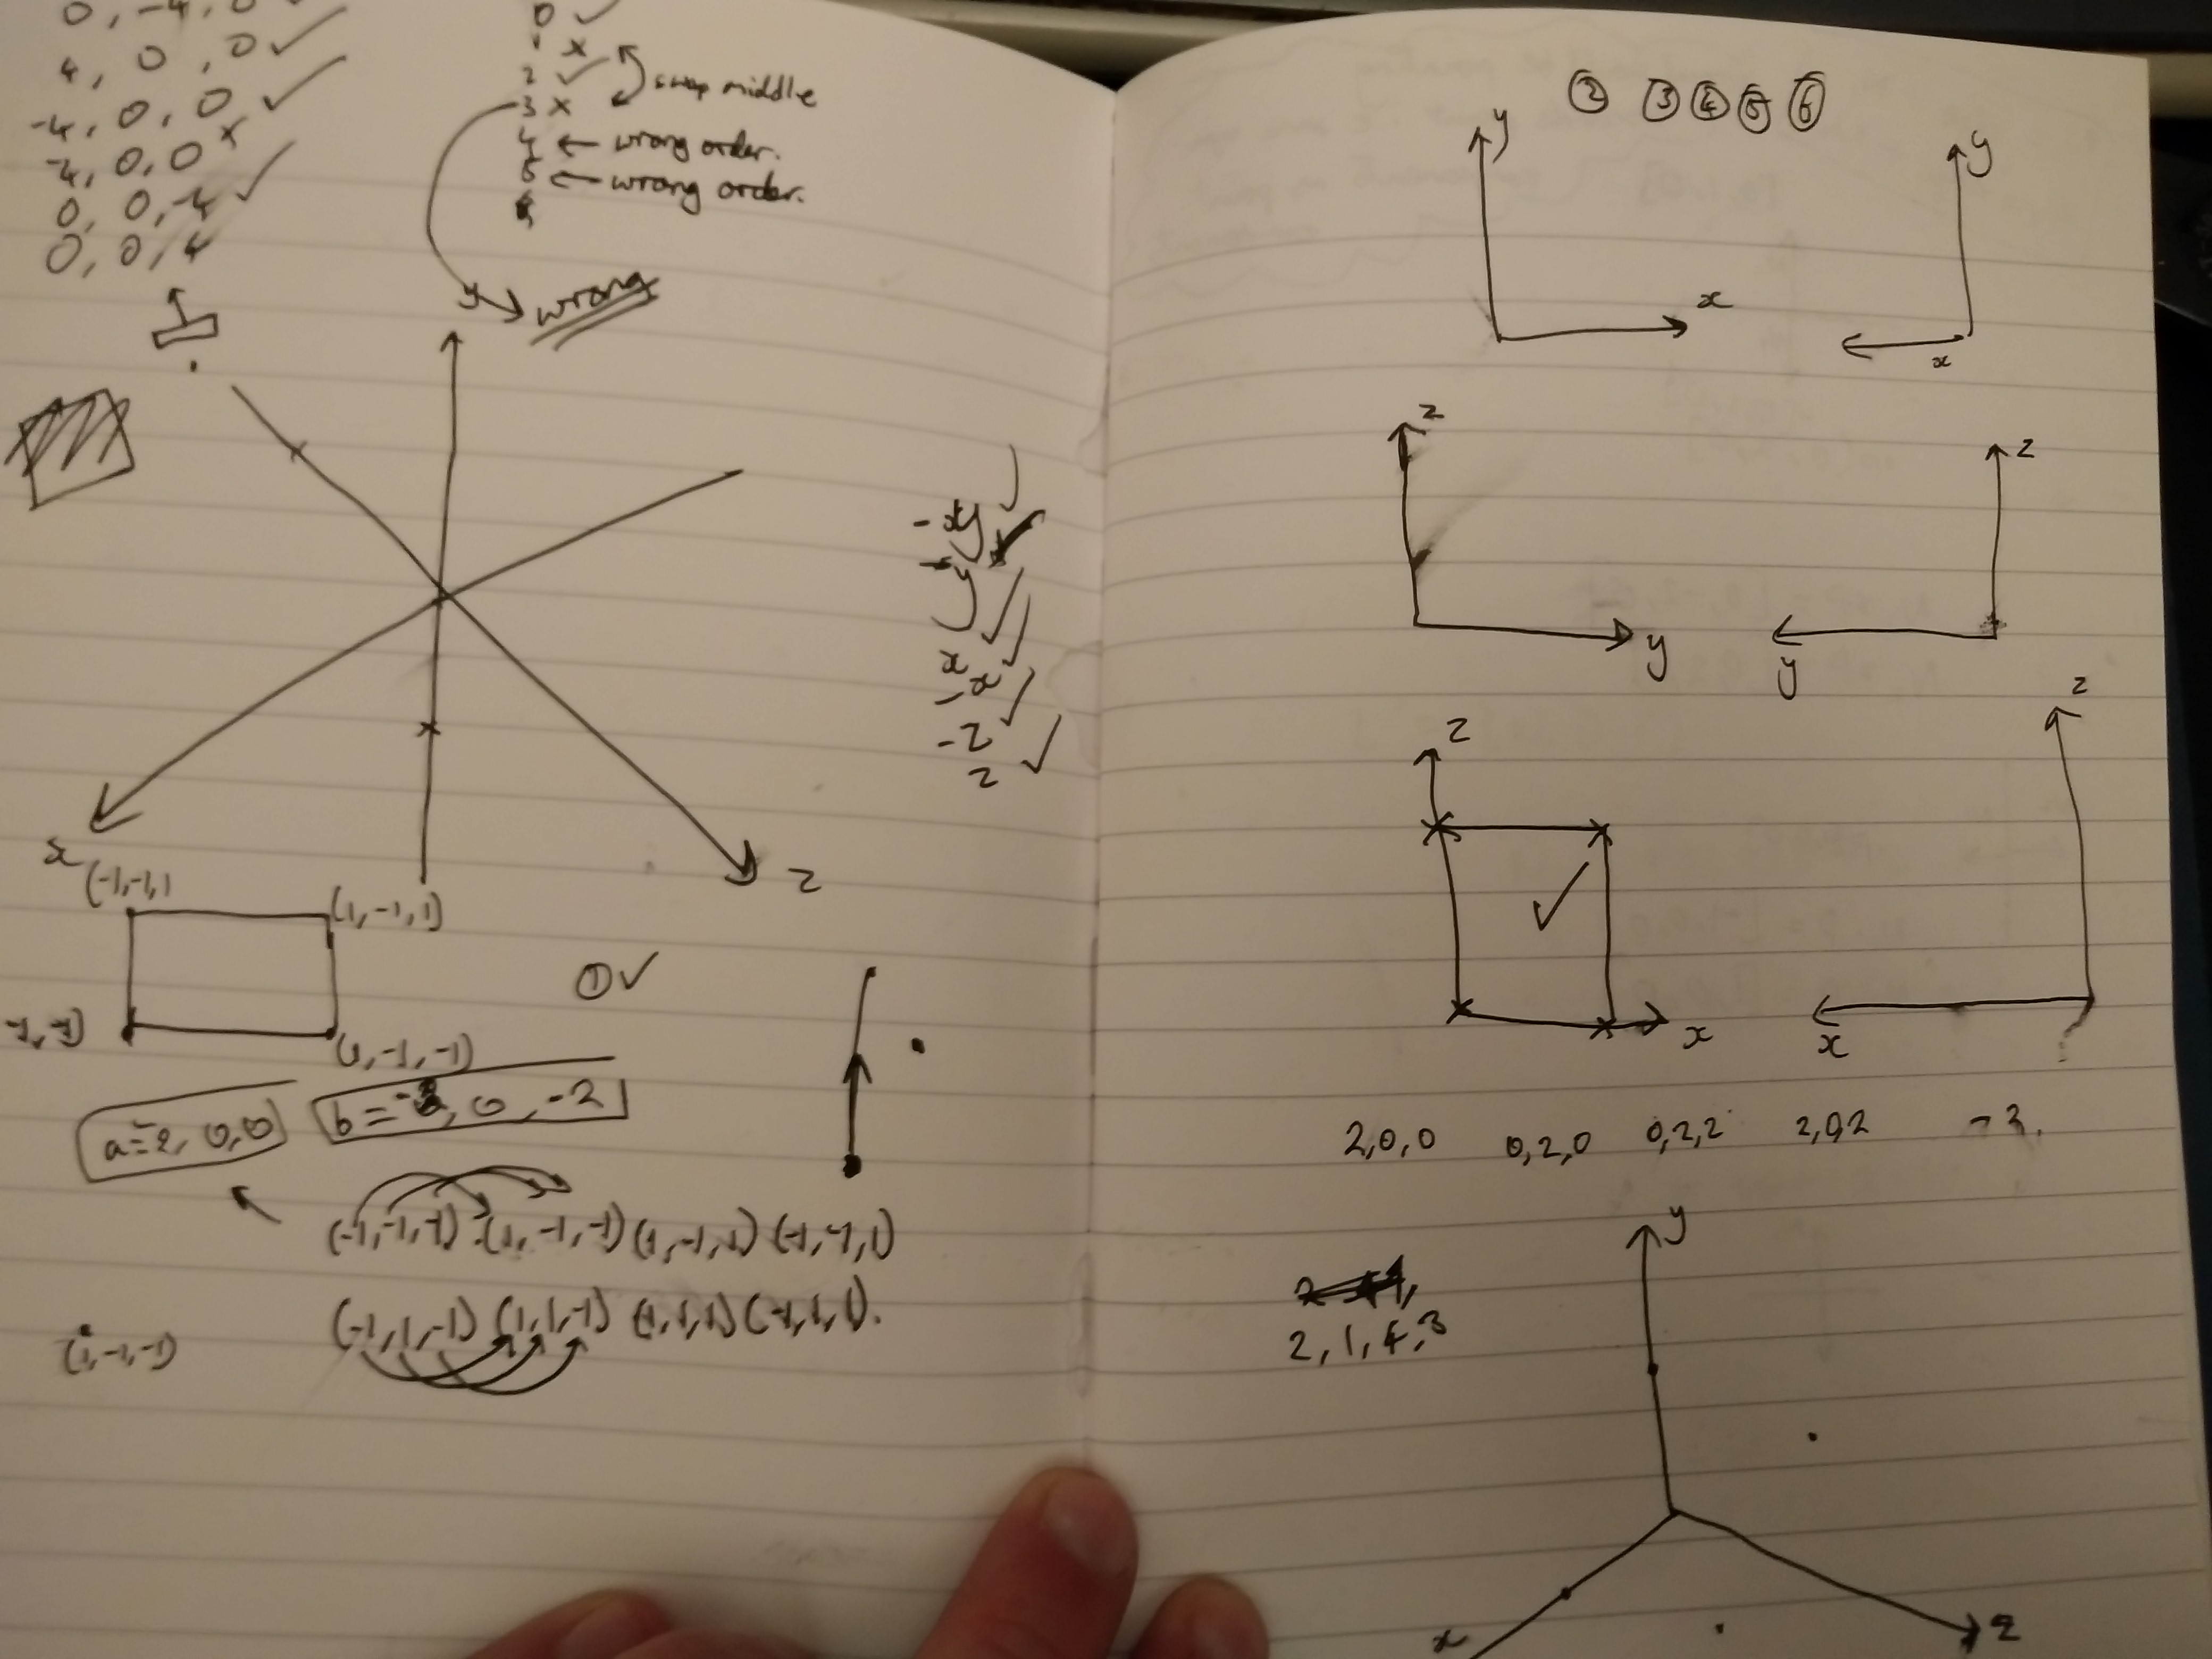 0, -4, 0
4, 0, 0 ✓
-4, 0, 0 ✓
-4, 0, 0 x
0, 0, -4 ✓
0, 0, 4
0 ✓
1 x
2 ✓
swap middle
3 x
4 ← wrong order.
5 ← wrong order.
y
wrong
x
z
-y ✓
x
-x ✓
-z ✓
z ✓
(-1,-1,1
(1,-1,1)
-1,-1)
(1,-1,-1)
① ✓
a=-2, 0,0
, 0, -2
(-1,-1,-1) (1,-1,-1) (1,-1,1) (-1,-1,1)
(-1,1,-1) (1,1,-1) (1,1,1) (-1,1,1).
(1,-1,-1)
② ③ ④ ⑤ ⑥
y
x
y
x
z
y
z
y
z
x
✓
z
x
2,0,0 0,2,0 0,2,2 2,0,2
2, 1, 4, 3
y
x
z